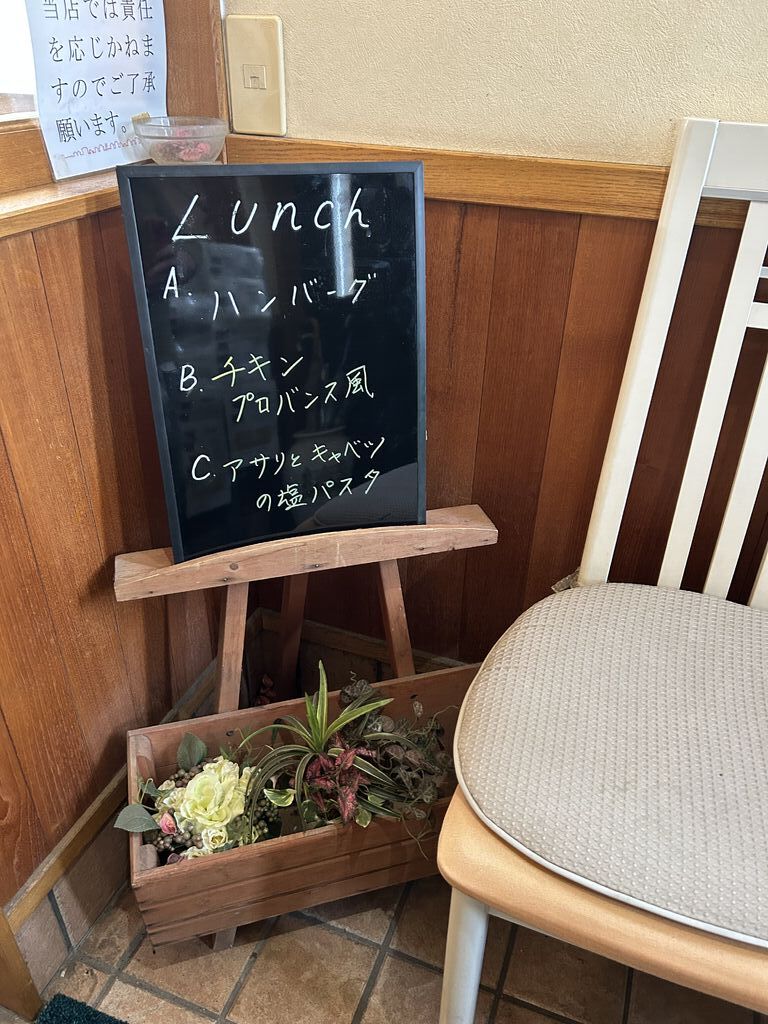 当店では責任
を応じかねま
すのでご了承
願います。
Lunch
A. ハンバーグ
B. チキン
プロバンス風
C. アサリとキャベツ
の塩パスタ